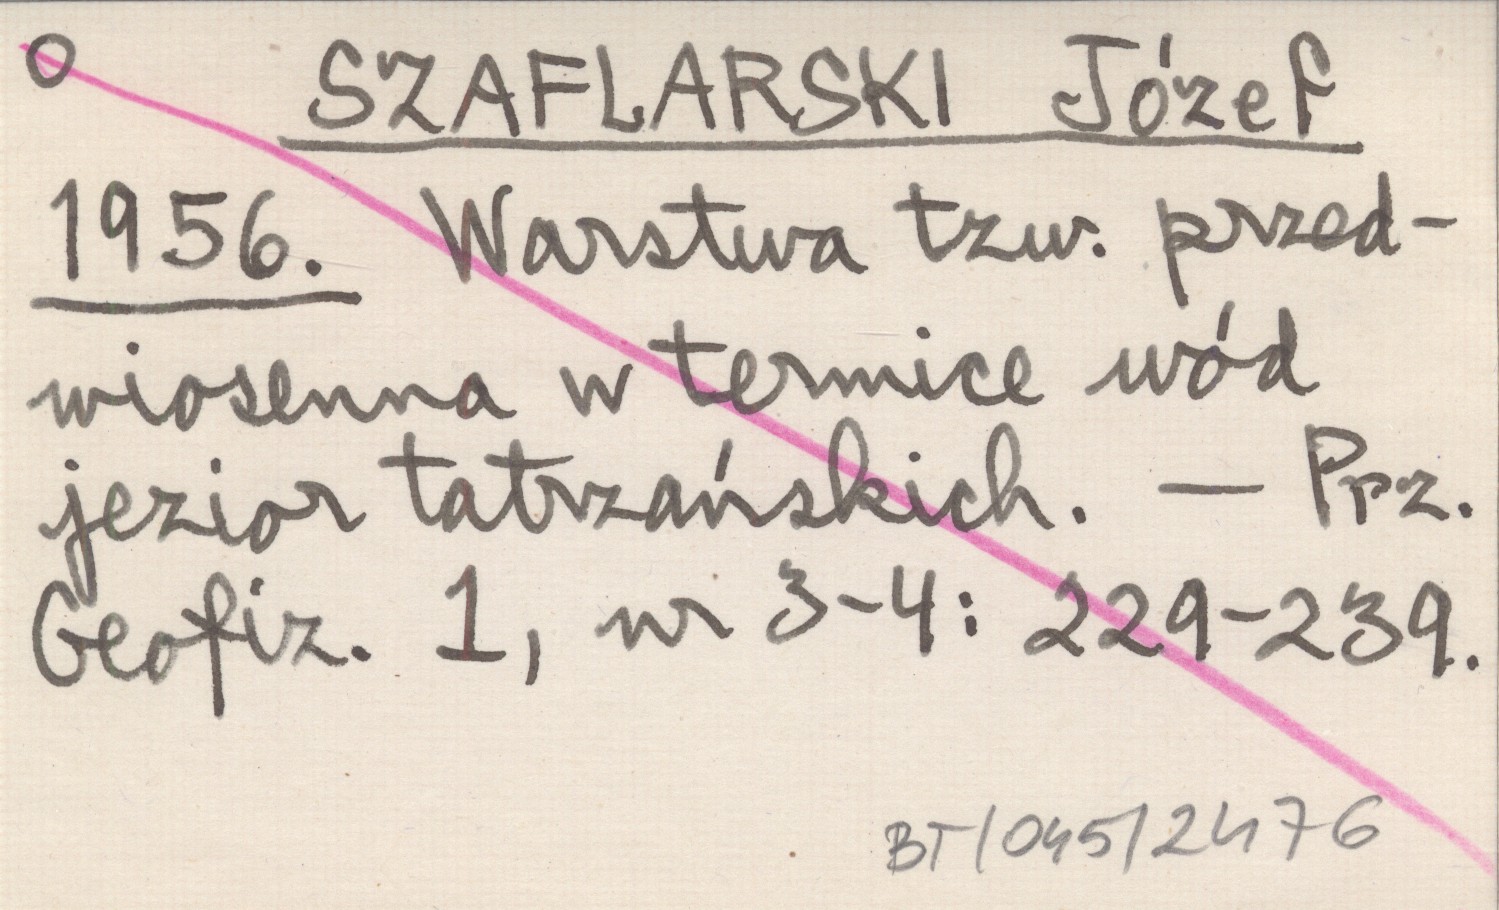 O SZAFLARSKI Józef
1956. Warstwa tzw. przed-
wiosenna w termice wód
jezior tatrzańskich. — Prz.
Geofiz. 1, nr 3-4: 229-239.
BT/045/2476